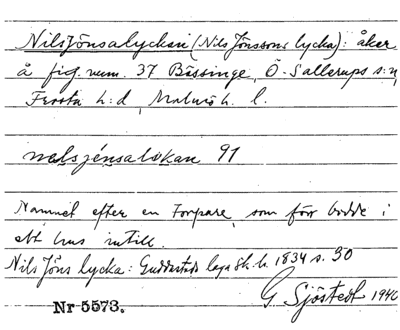 NilsJönsalyckan (Nils Jönssons lycka): åker
å fig. num. 37 Bässinge, Ö. Sallerups s:n,
Frosta h:d, Malmöh. l.
nelsjénsalökan 91
Namnet efter en Torpare, som förr bodde i
ett hus intill.
Nils Jöns lycka: laga sk. h. 1834 s. 30
G Sjöstedt 1946
Nr 5573.